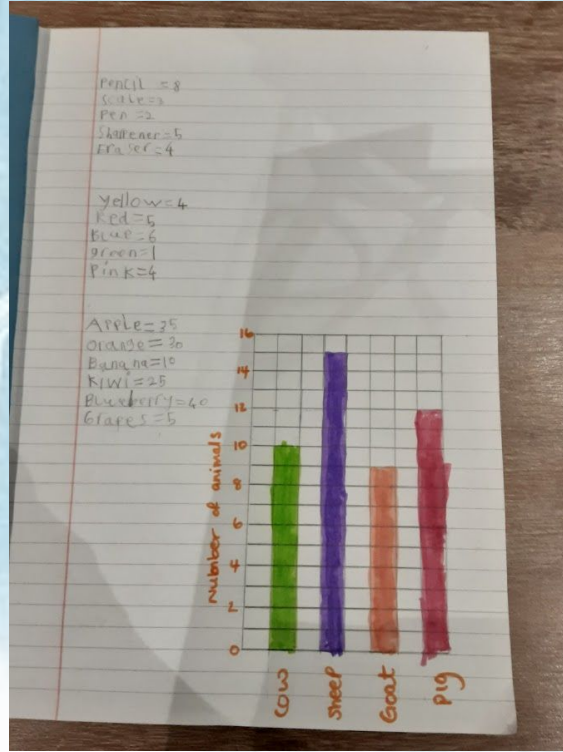 Pencil = 8
Scale=3
Pen =2
Sharrener=5
Eraser=4
Yellow=4
Red=5
Blue=6
green=1
Pink=4
Apple=35
Orange=30
Banana=10
Kiwi=25
Blueberry=40
Grapes=5
16
14
12
10
8
6
4
2
0
Number of animals
Cow
Sheep
Goat
Pig